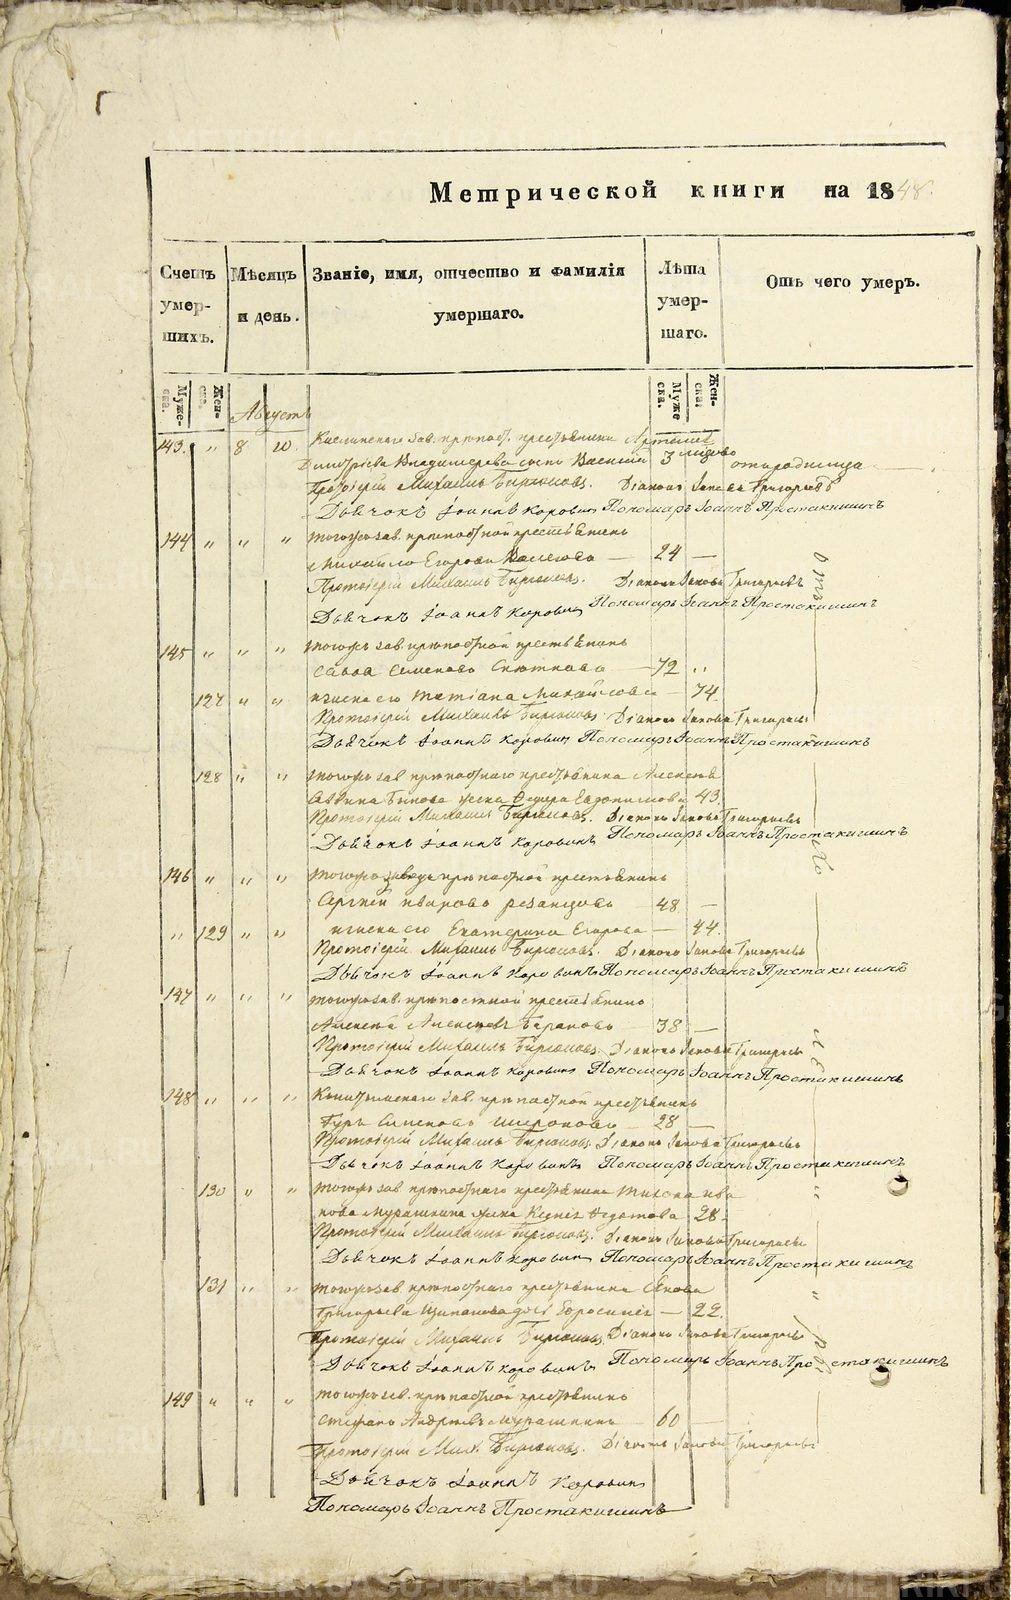 Метрической книги на 1848.
Счетъ умер- шихъ.
Мѣсяцъ и день.
Званіе, имя, отчество и фамилія умершаго.
Лѣта умер- шаго.
Отъ чего умеръ.
Муже- ска.
Жен- ска.
Августъ
Муже ска.
Жен- ска.
143. " 8 10. Каслинскаго зав. крѣпост. крестьянина
сынъ Василій 3
Протоіерей Михаилъ Бирюковъ. Діаконъ Іаковъ Григорьевъ
Дьячокъ Іоаннъ Коровинъ Пономарь Іоаннъ Простакишинъ
144 " " " тогожъ зав. крѣпостной крестьянинъ
Михайло Егоровъ 24 —
Протоіерей Михаилъ Бирюковъ. Діаконъ Іаковъ Григорьевъ
Дьячокъ Іоаннъ Коровинъ Пономарь Іоаннъ Простакишинъ
отъ
145 " " " тогожъ зав. крѣпостной крестьянинъ
Савва Семеновъ — 72 "
127 " " и жена его Татіана Михайлова — 74.
Протоіерей Михаилъ Бирюковъ Діаконъ Іаковъ Григорьевъ
Дьячокъ Іоаннъ Коровинъ Пономарь Іоаннъ Простакишинъ
128 " " тогожъ зав. крѣпостнаго крестьянина Алексѣя
жена Федора Евдокимова 43.
Протоіерей Михаилъ Бирюковъ. Діаконъ Іаковъ Григорьевъ
Дьячокъ Іоаннъ Коровинъ Пономарь Іоаннъ Простакишинъ
146 " " " тогожъ завода крѣпостной крестьянинъ
Сергѣй Ивановъ Резанцовъ 48 —
" 129 " " и жена его Екатерина Егорова — 44.
Протоіерей Михаилъ Бирюковъ. Діаконъ Іаковъ Григорьевъ
Дьячокъ Іоаннъ Коровинъ Пономарь Іоаннъ Простакишинъ
147 " " " тогожъ зав. крѣпостной крестьянинъ
Алексѣй Алексѣевъ Барановъ 38 —
Протоіерей Михаилъ Бирюковъ. Діаконъ Іаковъ Григорьевъ
Дьячокъ Іоаннъ Коровинъ Пономарь Іоаннъ Простакишинъ
148 " " " зав. крѣпостной крестьянинъ
— 28 —
Протоіерей Михаилъ Бирюковъ Діаконъ Іаковъ Григорьевъ
Дьячокъ Іоаннъ Коровинъ Пономарь Іоаннъ Простакишинъ
130 " " тогожъ зав. крѣпостнаго крестьянина Тихона Ива
нова Мурашкина жена Ксенія Федотова 28.
Протоіерей Михаилъ Бирюковъ. Діаконъ Іаковъ Григорьевъ
Дьячокъ Іоаннъ Коровинъ Пономарь Іоаннъ Простакишинъ
131 " " тогожъ зав. крѣпостнаго крестьянина Якова
Григорьева — 22.
Протоіерей Михаилъ Бирюковъ Діаконъ Іаковъ Григорьевъ
Дьячокъ Іоаннъ Коровинъ Пономарь Іоаннъ Простакишинъ
149 " " " тогожъ зав. крѣпостной крестьянинъ
Стефанъ Андреевъ Мурашкинъ — 60 —
Протоіерей Мих. Бирюковъ. Діаконъ Іаковъ Григорьевъ
Дьячокъ Іоаннъ Коровинъ
Пономарь Іоаннъ Простакишинъ